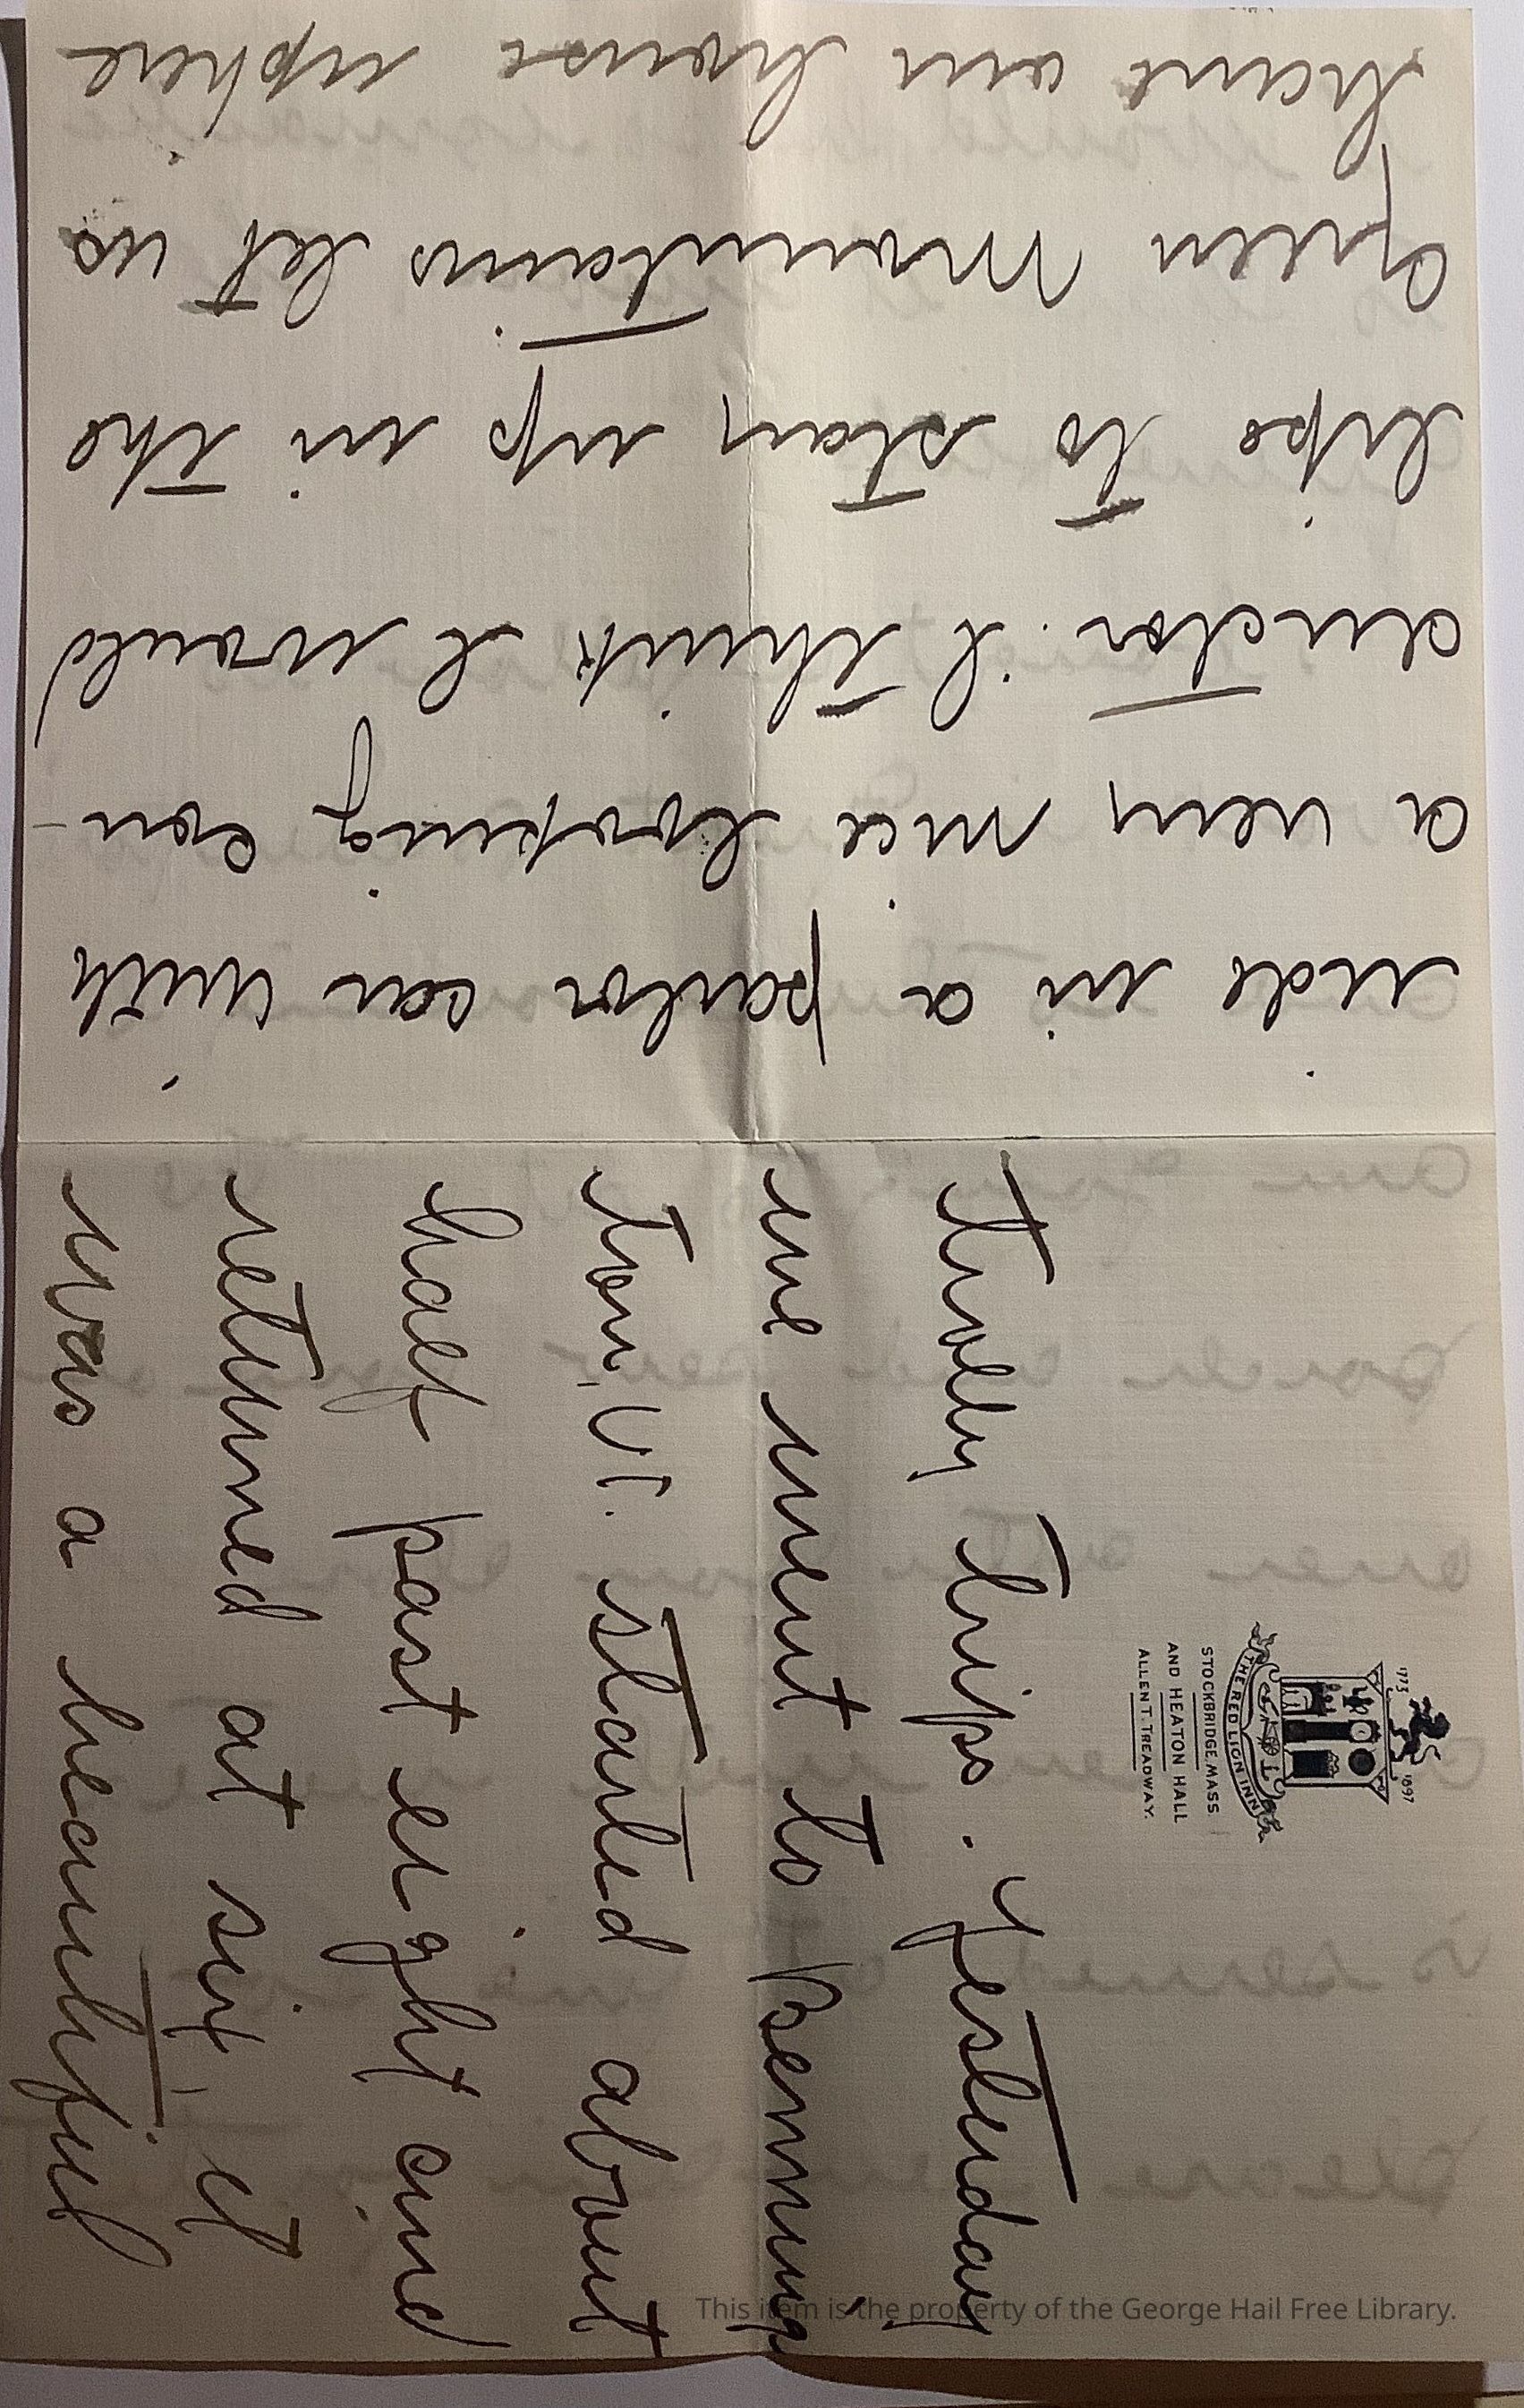 1773 1897
THE RED LION INN
STOCKBRIDGE, MASS.
AND HEATON HALL
ALLEN T. TREADWAY.
trolly trips. Yesterday
we went to Benning
ton, Vt. started about
half past eight and
returned at six, it
was a beautiful
ride in a parlor car with
a very nice looking con
ductor. I think I would
like to stay up in the
green mountains let us
have our house up here
This item is the property of the George Hail Free Library.